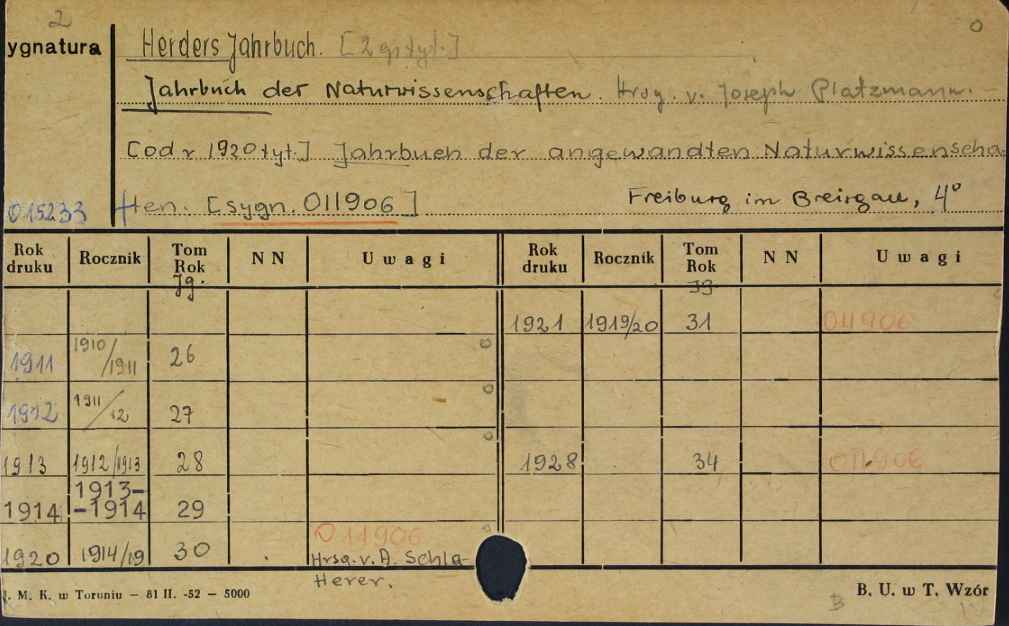 2
ygnatura
Herders Jahrbuch. [2 gi tyt.]
Jahrbuch der Naturwissenschaften. Hrsg. v. Joseph Platzmann. -
[od r 1920 tyt.] Jahrbuch der angewandten Naturwissenscha
015233 ften. [sygn. 011906] Freiburg im Breisgau, 4°
Rok druku Rocznik Tom Rok NN Uwagi Rok druku Rocznik Tom Rok NN Uwagi
Jg. Jg
1921 1919/20 31 011906
1911 1910/1911 26
1912 1911/12 27
1913 1912/1913 28 1928 34 011906
1914 1913--1914 29
1920 1914/19 30 011906
Hrsg. v. A. Schla-
Herer.
. M. K. w Toruniu — 81 II. -52 — 5000 B. U. w T. Wzór
B